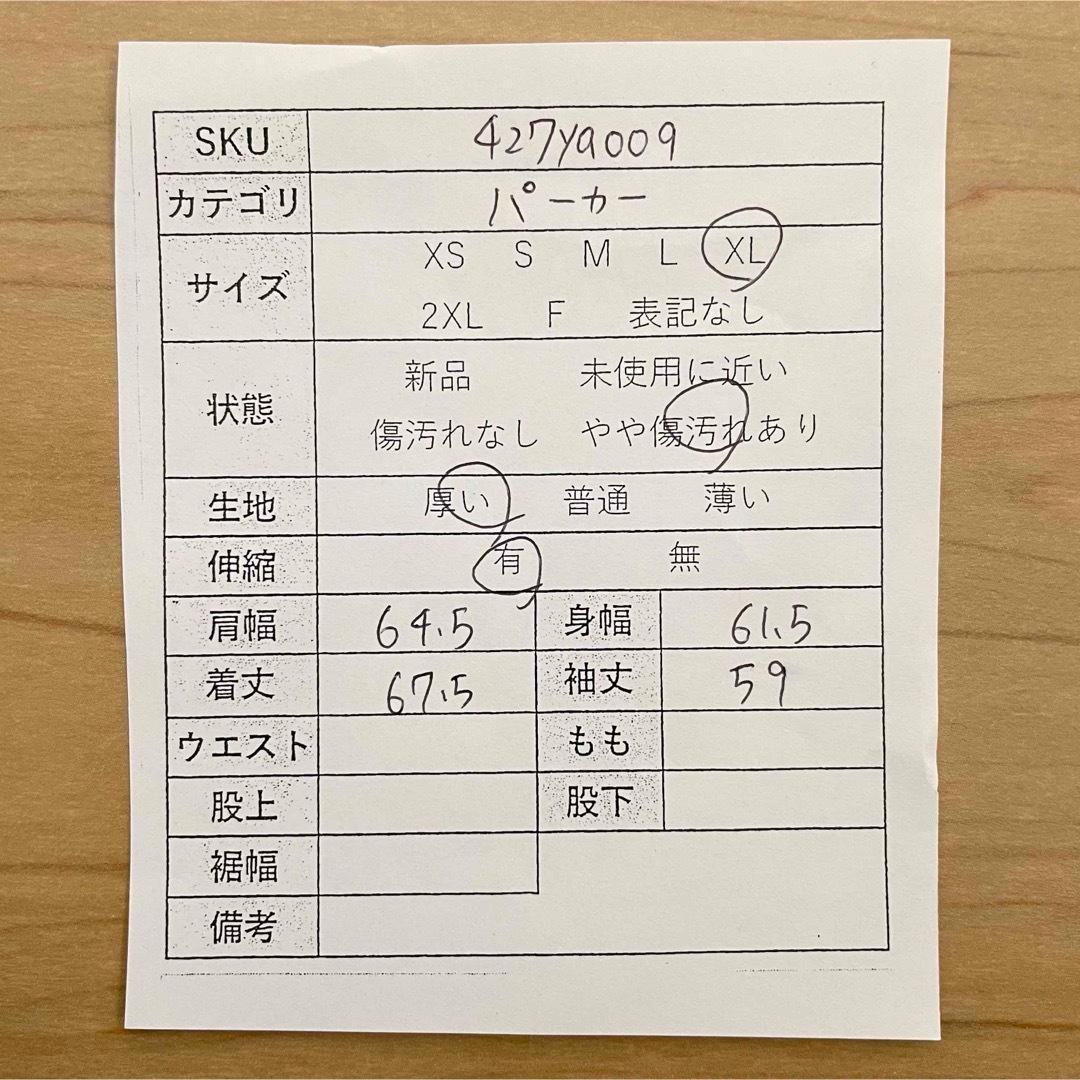 SKU 427ya009
カテゴリ パーカー
サイズ XS S M L XL
2XL F 表記なし
状態 新品 未使用に近い
傷汚れなし やや傷汚れあり
生地 厚い 普通 薄い
伸縮 有 無
肩幅 64.5 身幅 61.5
着丈 67.5 袖丈 59
ウエスト もも
股上 股下
裾幅
備考